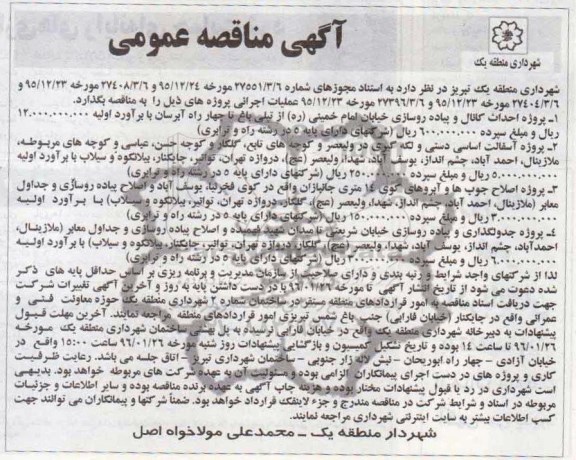 آگهی مناقصه عمومی
شهرداری منطقه یک
شهرداری منطقه یک تبریز در نظر دارد به استناد مجوزهای شماره ۲۷۵۵۱/۳/۶ مورخه ۹۵/۱۲/۲۴ و ۲۷۴۰۸/۳/۶ مورخه ۹۵/۱۲/۲۳ و
۲۷۴۰۴/۳/۶ مورخه ۹۵/۱۲/۲۳ و ۲۷۳۹۶/۳/۶ مورخه ۹۵/۱۲/۲۳ عملیات اجرائی پروژه های ذیل را به مناقصه بگذارد.
۱- پروژه احداث کانال و پیاده روسازی خیابان امام خمینی (ره) از تپلی باغ تا چهار راه آبرسان با برآورد اولیه ۱۲.۰۰۰.۰۰۰.۰۰۰
ریال و مبلغ سپرده ۶۰۰.۰۰۰.۰۰۰ ریال (شرکتهای دارای پایه ۵ در رشته راه و ترابری)
۲- پروژه آسفالت اساسی دستی و لکه گیری در ولیعصر و کوچه های تابع، گلکار و کوچه حسن، عباسی و کوچه های مربوطه،
ملازینال، احمد آباد، چشم انداز، یوسف آباد، شهدا، ولیعصر (عج)، دروازه تهران، توانیر، جابکتار، بیلانکوه و سیلاب با برآورد اولیه
۵.۰۰۰.۰۰۰.۰۰۰ ریال و مبلغ سپرده ۲۵۰.۰۰۰.۰۰۰ ریال (شرکتهای دارای پایه ۵ در رشته راه و ترابری)
۳- پروژه اصلاح جوب ها و آبروهای کوی ۱۴ متری جانبازان واقع در کوی فخرنیا، یوسف آباد و اصلاح پیاده روسازی و جداول
معابر (ملازینال، احمد آباد، چشم انداز، شهدا، ولیعصر (عج)، گلکار، دروازه تهران، توانیر، جابکتار، بیلانکوه و سیلاب) با برآورد اولیه
۳.۰۰۰.۰۰۰.۰۰۰ ریال و مبلغ سپرده ۱۵۰.۰۰۰.۰۰۰ ریال (شرکتهای دارای پایه ۵ در رشته راه و ترابری)
۴- پروژه جدولگذاری و پیاده روسازی خیابان شریعتی تا میدان شهید فهمیده و اصلاح پیاده روسازی و جداول معابر (ملازینال،
احمدآباد، چشم انداز، یوسف آباد، شهدا، ولیعصر (عج)، گلکار، دروازه تهران، توانیر، جابکتار، بیلانکوه و سیلاب) با برآورد اولیه
ریال و مبلغ سپرده ۳۰۰.۰۰۰.۰۰۰ ریال (شرکتهای دارای پایه ۵ در رشته راه و ترابری)
لذا از شرکتهای واجد شرایط و رتبه بندی و دارای صلاحیت از سازمان مدیریت و برنامه ریزی بر اساس حداقل پایه های ذکر
شده دعوت می شود از تاریخ انتشار آگهی تا مورخه ۹۶/۰۱/۲۶ با در دست داشتن پایه به روز و آخرین آگهی تغییرات شرکت
جهت دریافت اسناد مناقصه به امور قراردادهای منطقه مستقر در ساختمان شماره ۲ شهرداری منطقه یک حوزه معاونت فنی و
عمرانی واقع در جابکتار (خیابان فارابی) جنب باغ شمس تبریزی امور قراردادهای منطقه مراجعه نمایند. آخرین مهلت قبول
پیشنهادات به دبیرخانه شهرداری منطقه یک واقع در خیابان فارابی نرسیده به پل بهشتی ساختمان شهرداری منطقه یک مورخه
۹۶/۰۱/۲۶ تا ساعت ۱۴ بوده و تاریخ تشکیل کمیسیون و بازگشایی پیشنهادات روز شنبه مورخه ۹۶/۰۱/۲۶ ساعت ۱۵:۰۰ واقع در
خیابان آزادی - چهار راه ابوریحان - نبش لاله زار جنوبی - ساختمان شهرداری تبریز - اتاق جلسه می باشد. رعایت ظرفیت
کاری و پروژه های در دست اجرای پیمانکاران الزامی بوده و مسئولیت آن به عهده شرکت های مربوطه خواهد بود. بدیهی
است شهرداری در رد یا قبول پیشنهادات مختار بوده و هزینه چاپ آگهی به عهده برنده مناقصه بوده و سایر اطلاعات و جزئیات
مربوطه در اسناد و شرایط شرکت در مناقصه مندرج و جزء لاینفک قرارداد خواهد بود. ضمناً شرکتها و پیمانکاران می توانند جهت
کسب اطلاعات بیشتر به سایت اینترنتی شهرداری مراجعه نمایند.
شهردار منطقه یک - محمدعلی مولاخواه اصل